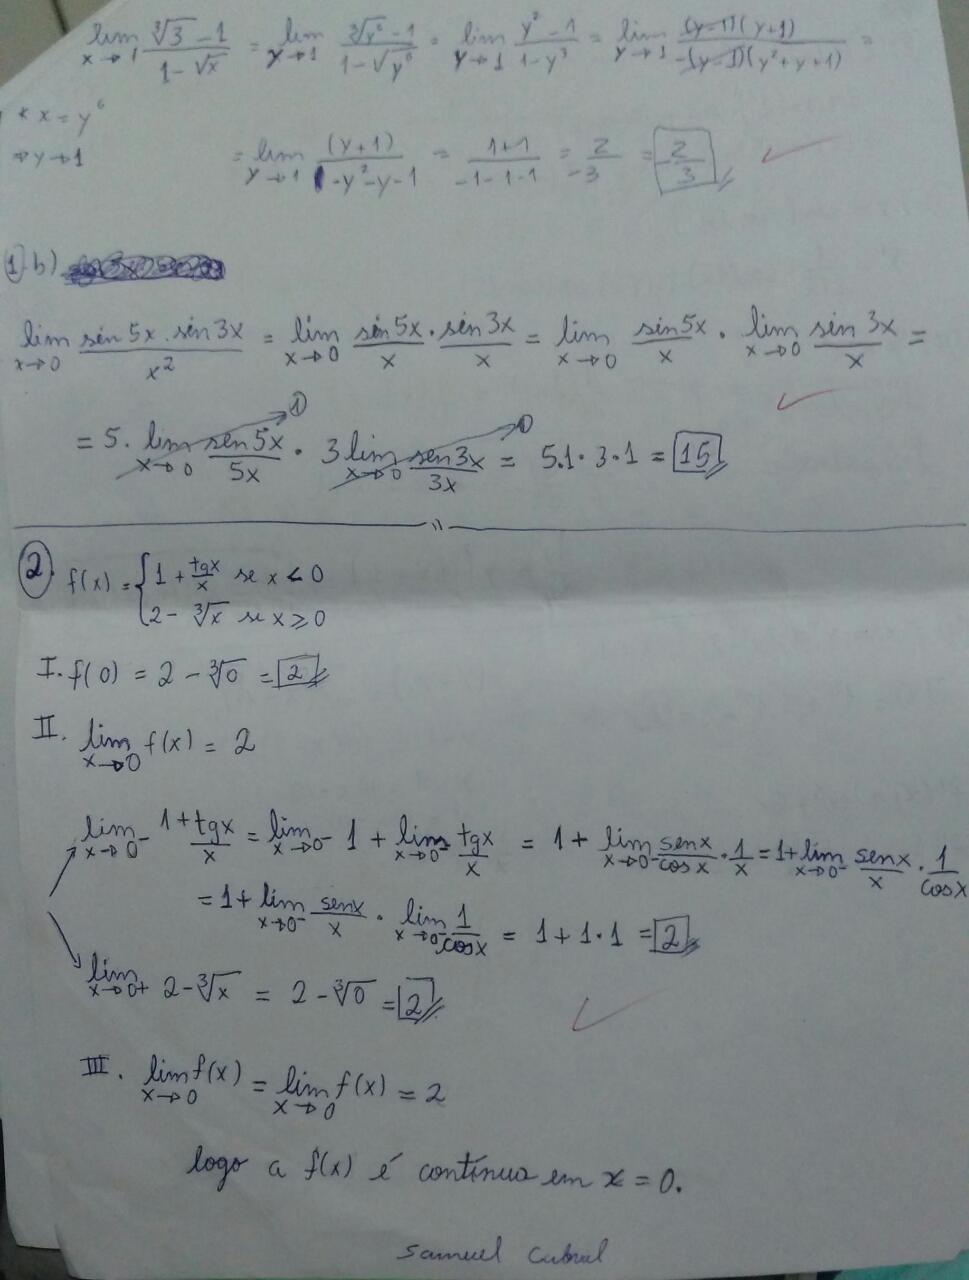 lim x→1 ∛3 - 1 / 1 - √x = lim y→1 ∛y⁶ - 1 / 1 - √y⁶ = lim y→1 y² - 1 / 1 - y³ = lim y→1 (y-1)(y+1) / -(y-1)(y²+y+1) =
* x = y⁶
⇒ y→1
= lim y→1 (y+1) / -y²-y-1 = 1+1 / -1-1-1 = 2 / -3 = -2/3
1. b)
lim x→0 sin 5x . sin 3x / x² = lim x→0 sin 5x / x · sin 3x / x = lim x→0 sin 5x / x · lim x→0 sin 3x / x =
= 5 . lim x→0 sen 5x / 5x · 3 lim x→0 sen 3x / 3x = 5.1 · 3 · 1 = 15
2. f(x) = { 1 + tgx / x se x < 0
2 - ∛x se x ≥ 0
I. f(0) = 2 - ∛0 = 2
II. lim x→0 f(x) = 2
lim x→0⁻ 1 + tgx / x = lim x→0⁻ 1 + lim x→0⁻ tgx / x = 1 + lim x→0⁻ senx / cosx · 1 / x = 1 + lim x→0⁻ senx / x · 1 / cosx
= 1 + lim x→0⁻ senx / x · lim x→0⁻ 1 / cosx = 1 + 1 · 1 = 2
lim x→0+ 2 - ∛x = 2 - ∛0 = 2
III. lim x→0 f(x) = lim x→0 f(x) = 2
logo a f(x) é contínua em x = 0.
Samuel Cabral